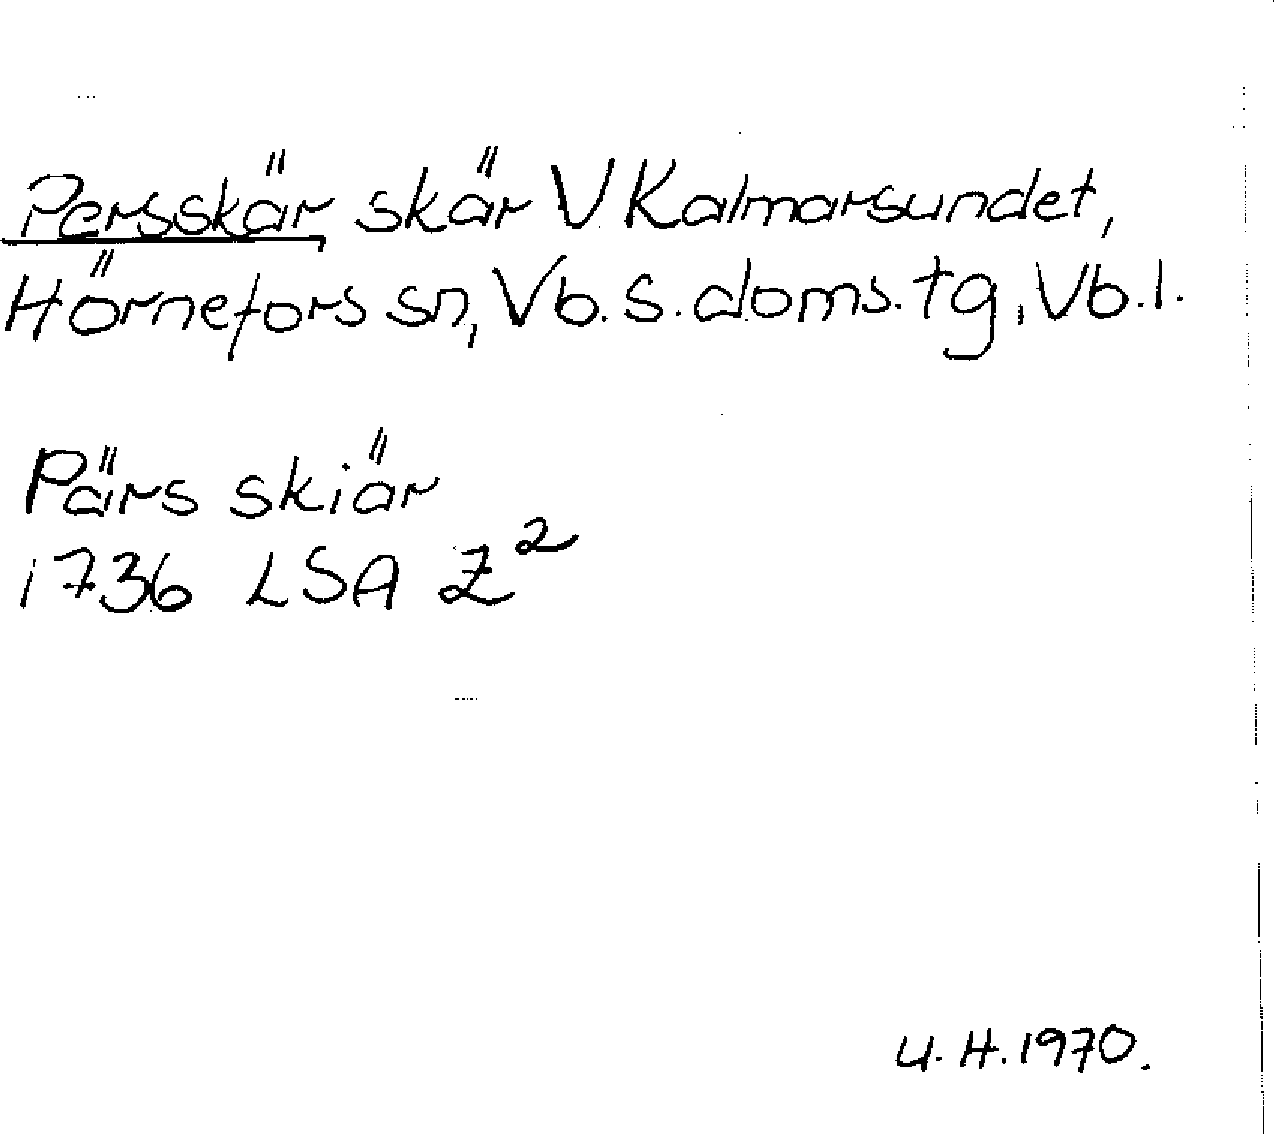 Persskär skär V Kalmarsundet,
Hörnefors sn, Vb. S. doms. tg, Vb. l.
Pärs skiär
1736 LSA Z²
U. H. 1970.